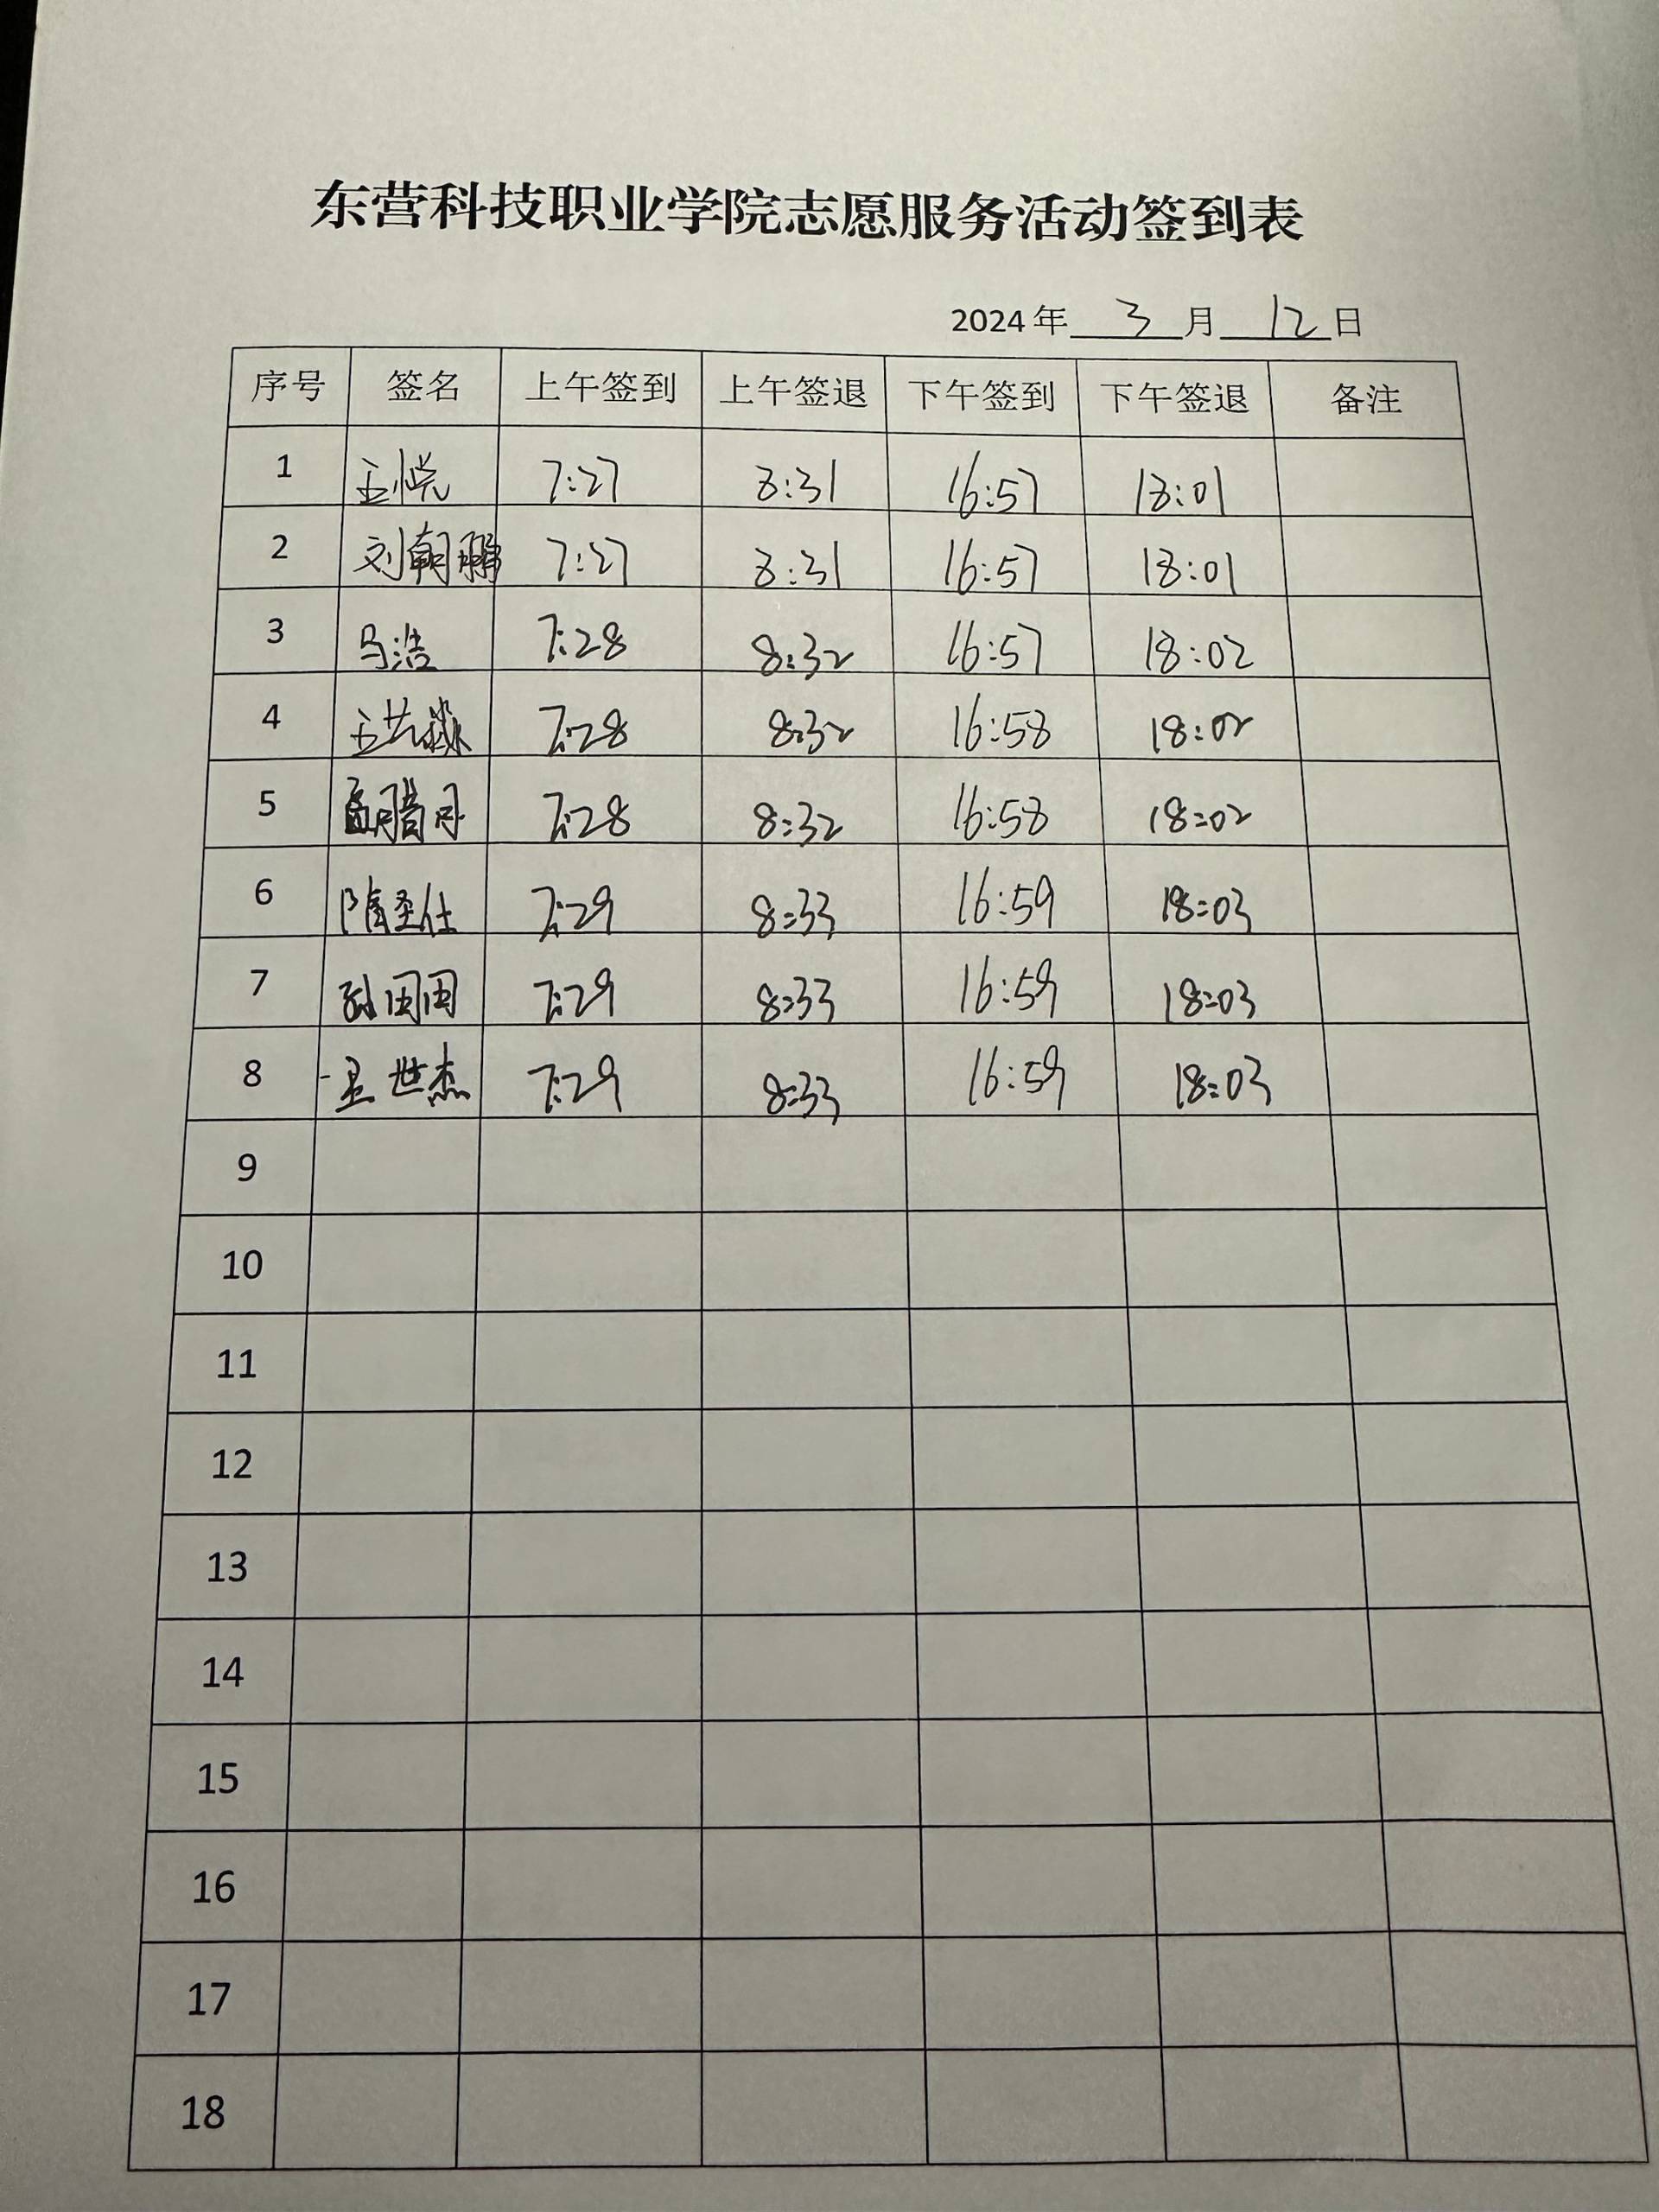 东营科技职业学院志愿服务活动签到表
2024 年 3 月 12 日
序号 签名 上午签到 上午签退 下午签到 下午签退 备注
1 王悦 7:27 8:31 16:57 18:01
2 刘朝鹏 7:27 8:31 16:57 18:01
3 马浩 7:28 8:32 16:57 18:02
4 7:28 8:32 16:58 18:02
5 孟腊月 7:28 8:32 16:58 18:02
6 隋圣仕 7:29 8:33 16:59 18:03
7 孙田田 7:29 8:33 16:59 18:03
8 王世杰 7:29 8:33 16:59 18:03
9
10
11
12
13
14
15
16
17
18